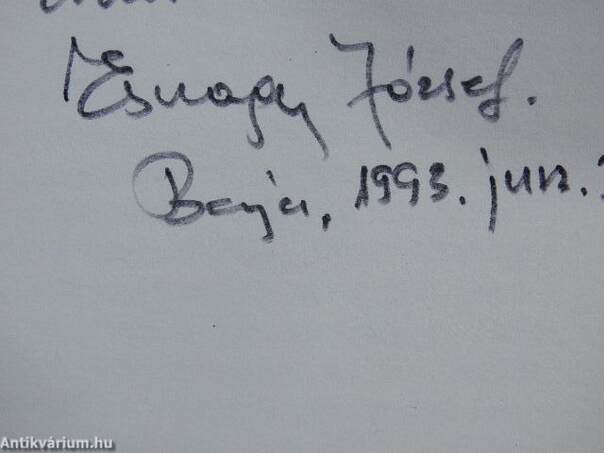 Esnagy József.
Baja, 1993. jun.
Antikvárium.hu